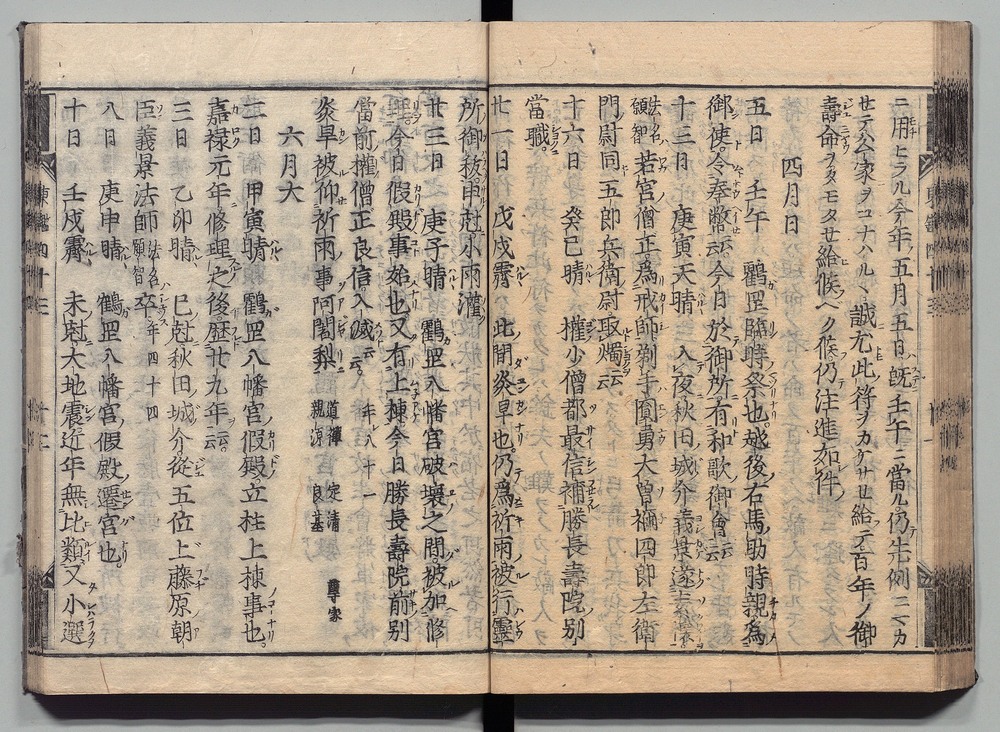 ニ用ヒラル今年ノ五月五日既ニ壬午ニ當ル仍先例ニマカ
せテ公家ヲコナハルヽ誠ニ尤此符ヲカケサせ給テ百年ノ御
壽命ヲタモタせ給ヒ候ヘク候仍注進如件
四月日
五日 壬午 鶴罡臨時祭也越後右馬助時親為
御使令奉幣云云今日於御所有和歌御會云云
十三日 庚寅天晴 入夜秋田城介義景遂
法名願智若宮僧正為戒師剃手圓勇大曽禰四郎左衛
門尉同五郎兵衛尉取燭云云
十六日 癸巳晴 權少僧都最信補勝長壽院別
當職
廿一日 戊戌霽 此間炎旱也仍為祈雨被行靈
所御秡雨尅小雨灌
廿三日 庚子晴 鶴罡八幡宮破壊之間被加修
理今日假殿事始也又有上棟今日勝長壽院前別
當前權僧正良信入滅云云 年八十一
炎旱被仰祈雨事阿闍梨 道禪 定清 尊家 親源 良基
六月大
二日 甲寅晴 鶴罡八幡宮假殿立柱上棟事也
嘉禄元年修理之後歴廿九年云云
三日 乙卯晴 巳尅秋田城介從五位上藤原朝
臣義景法師法名願智卒年四十四
八日 庚申晴 鶴罡八幡宮假殿遷宮也
十日 壬戌霽 未尅大地震近年無比類又小選